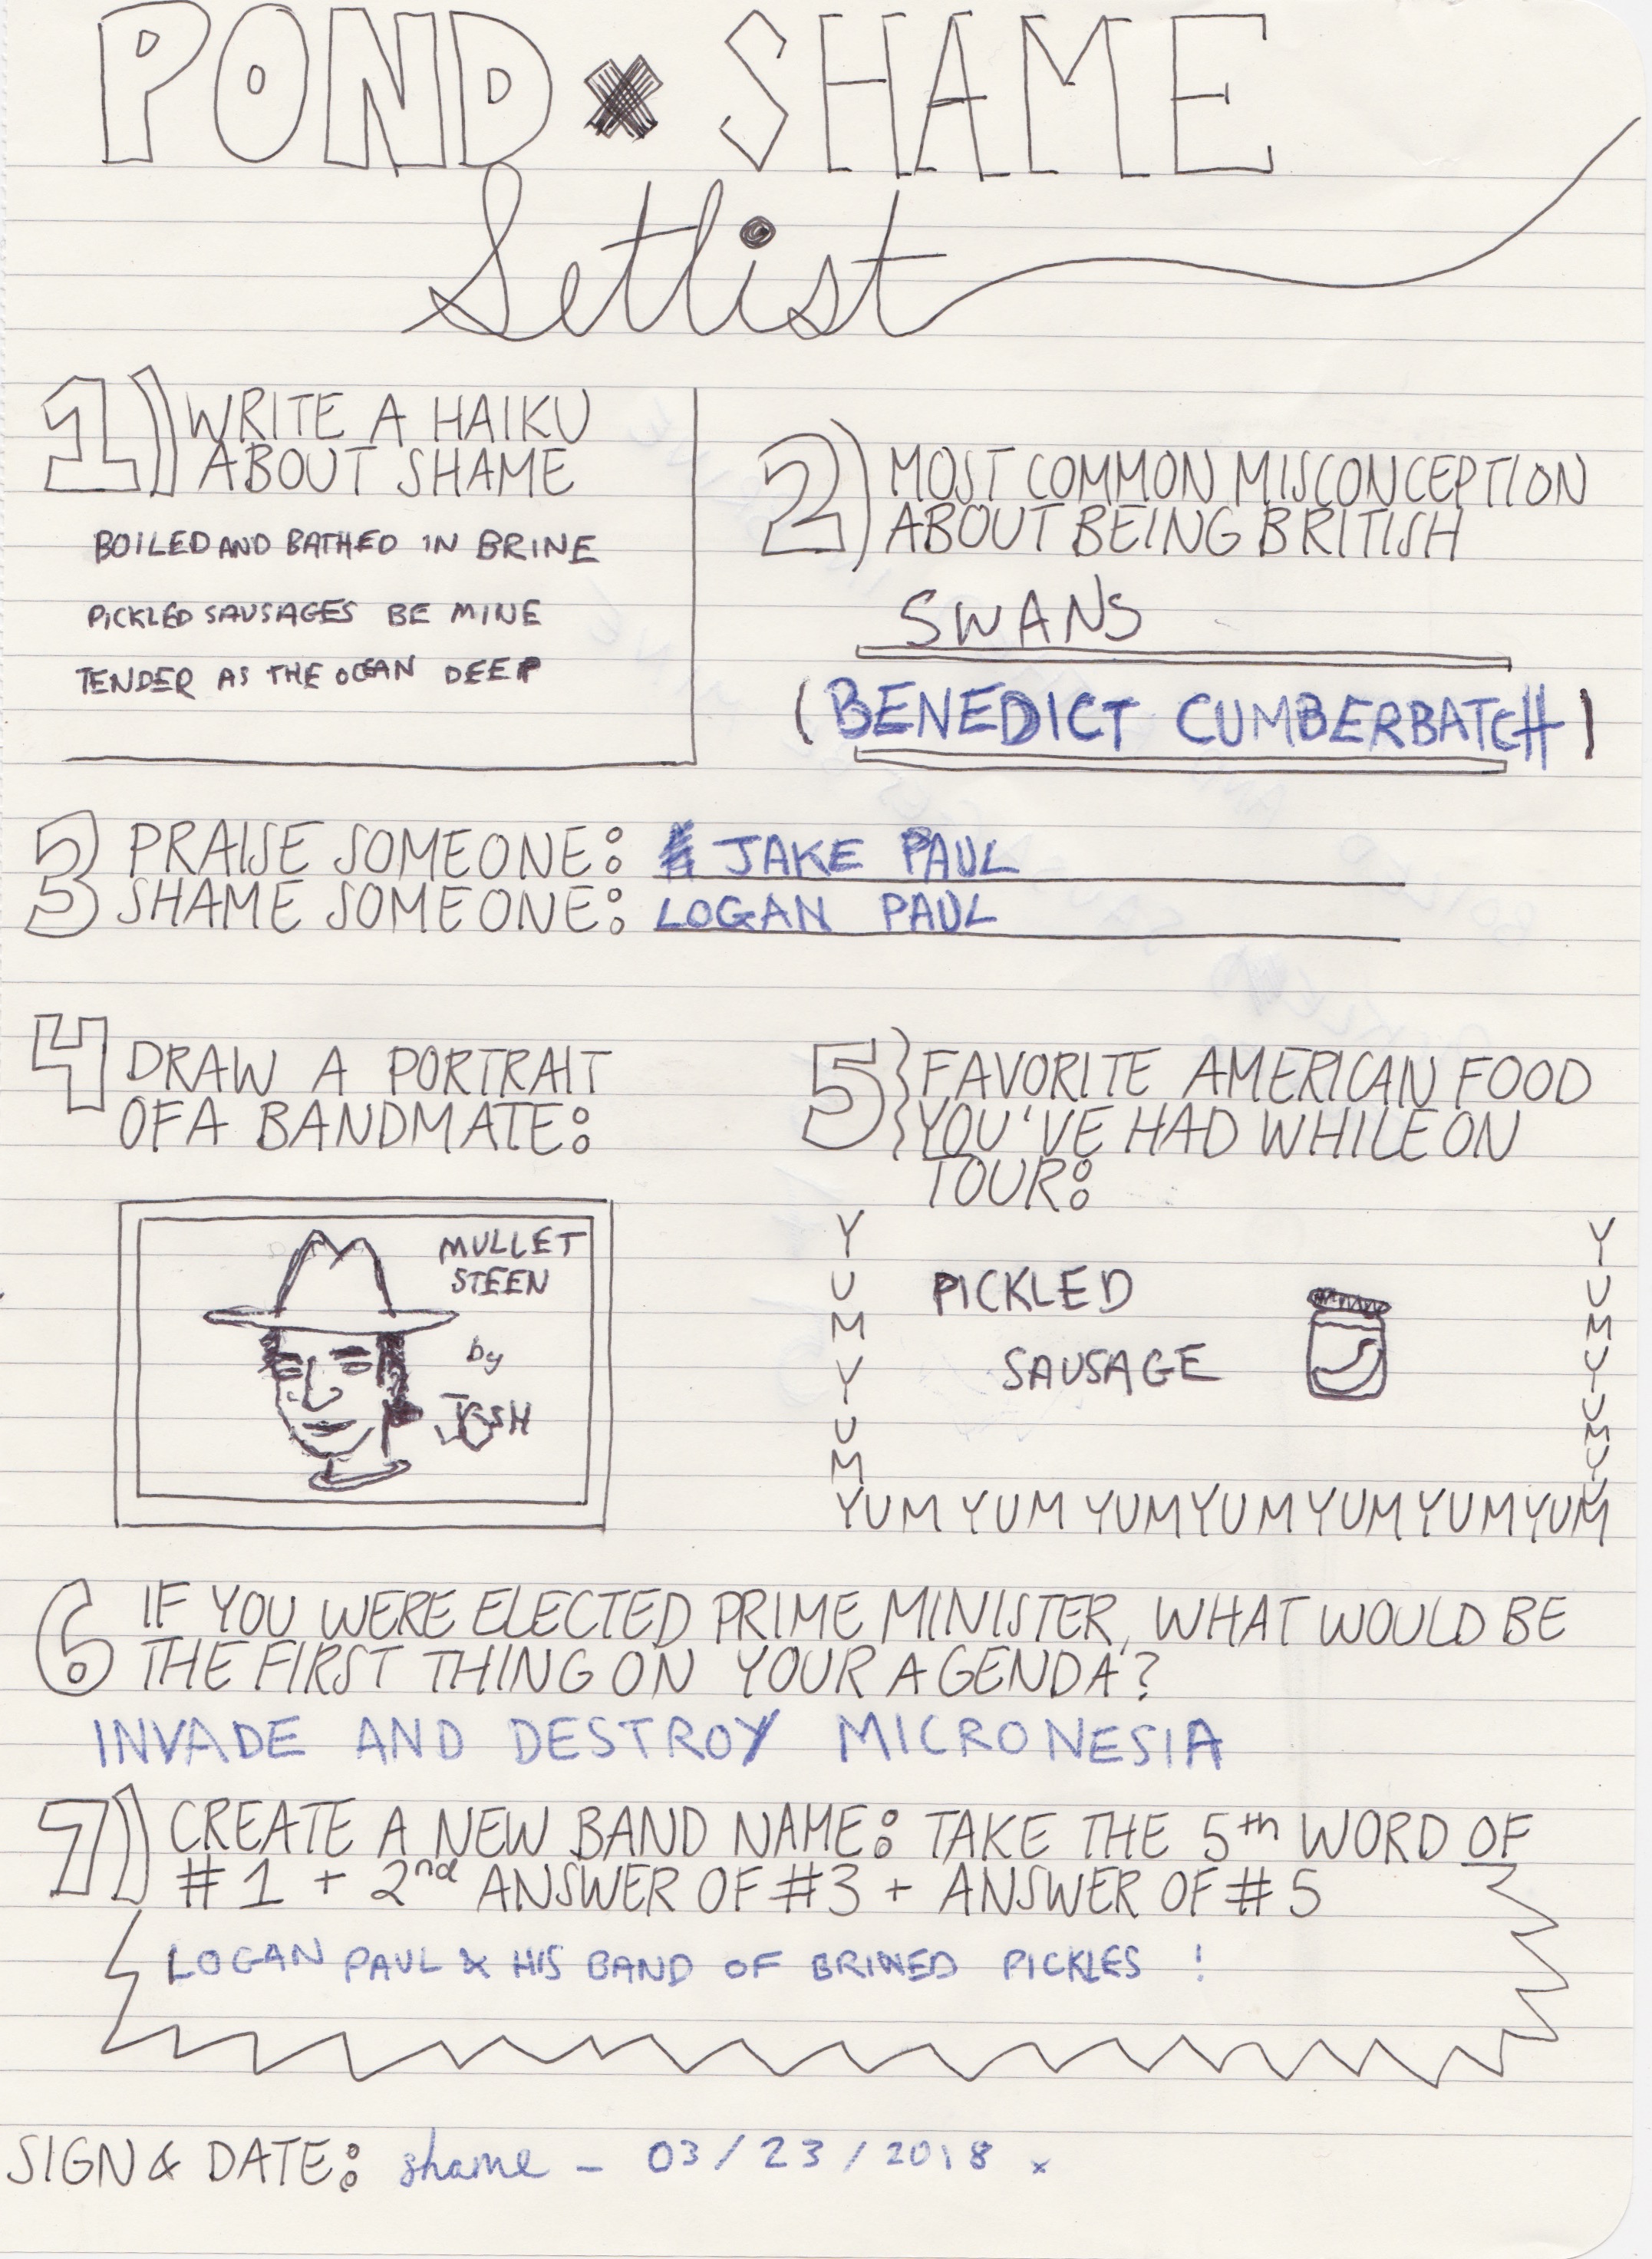 POND x SHAME
Setlist
1) WRITE A HAIKU
ABOUT SHAME
BOILED AND BATHED IN BRINE
PICKLED SAUSAGES BE MINE
TENDER AS THE OCEAN DEEP
2) MOST COMMON MISCONCEPTION
ABOUT BEING BRITISH
SWANS
(BENEDICT CUMBERBATCH)
3 PRAISE SOMEONE: JAKE PAUL
SHAME SOMEONE: LOGAN PAUL
4 DRAW A PORTRAIT
OF A BANDMATE:
MULLET
STEEN
by
JOSH
5} FAVORITE AMERICAN FOOD
YOU'VE HAD WHILE ON
TOUR:
YUMYUM
PICKLED
SAUSAGE
YUMYUMYUM
YUM YUM YUM YUM YUM YUM YUM
6 IF YOU WERE ELECTED PRIME MINISTER, WHAT WOULD BE
THE FIRST THING ON YOUR AGENDA?
INVADE AND DESTROY MICRONESIA
7) CREATE A NEW BAND NAME: TAKE THE 5th WORD OF
#1 + 2nd ANSWER OF #3 + ANSWER OF #5
LOGAN PAUL & HIS BAND OF BRINED PICKLES !
SIGN & DATE: shame - 03/23/2018 x